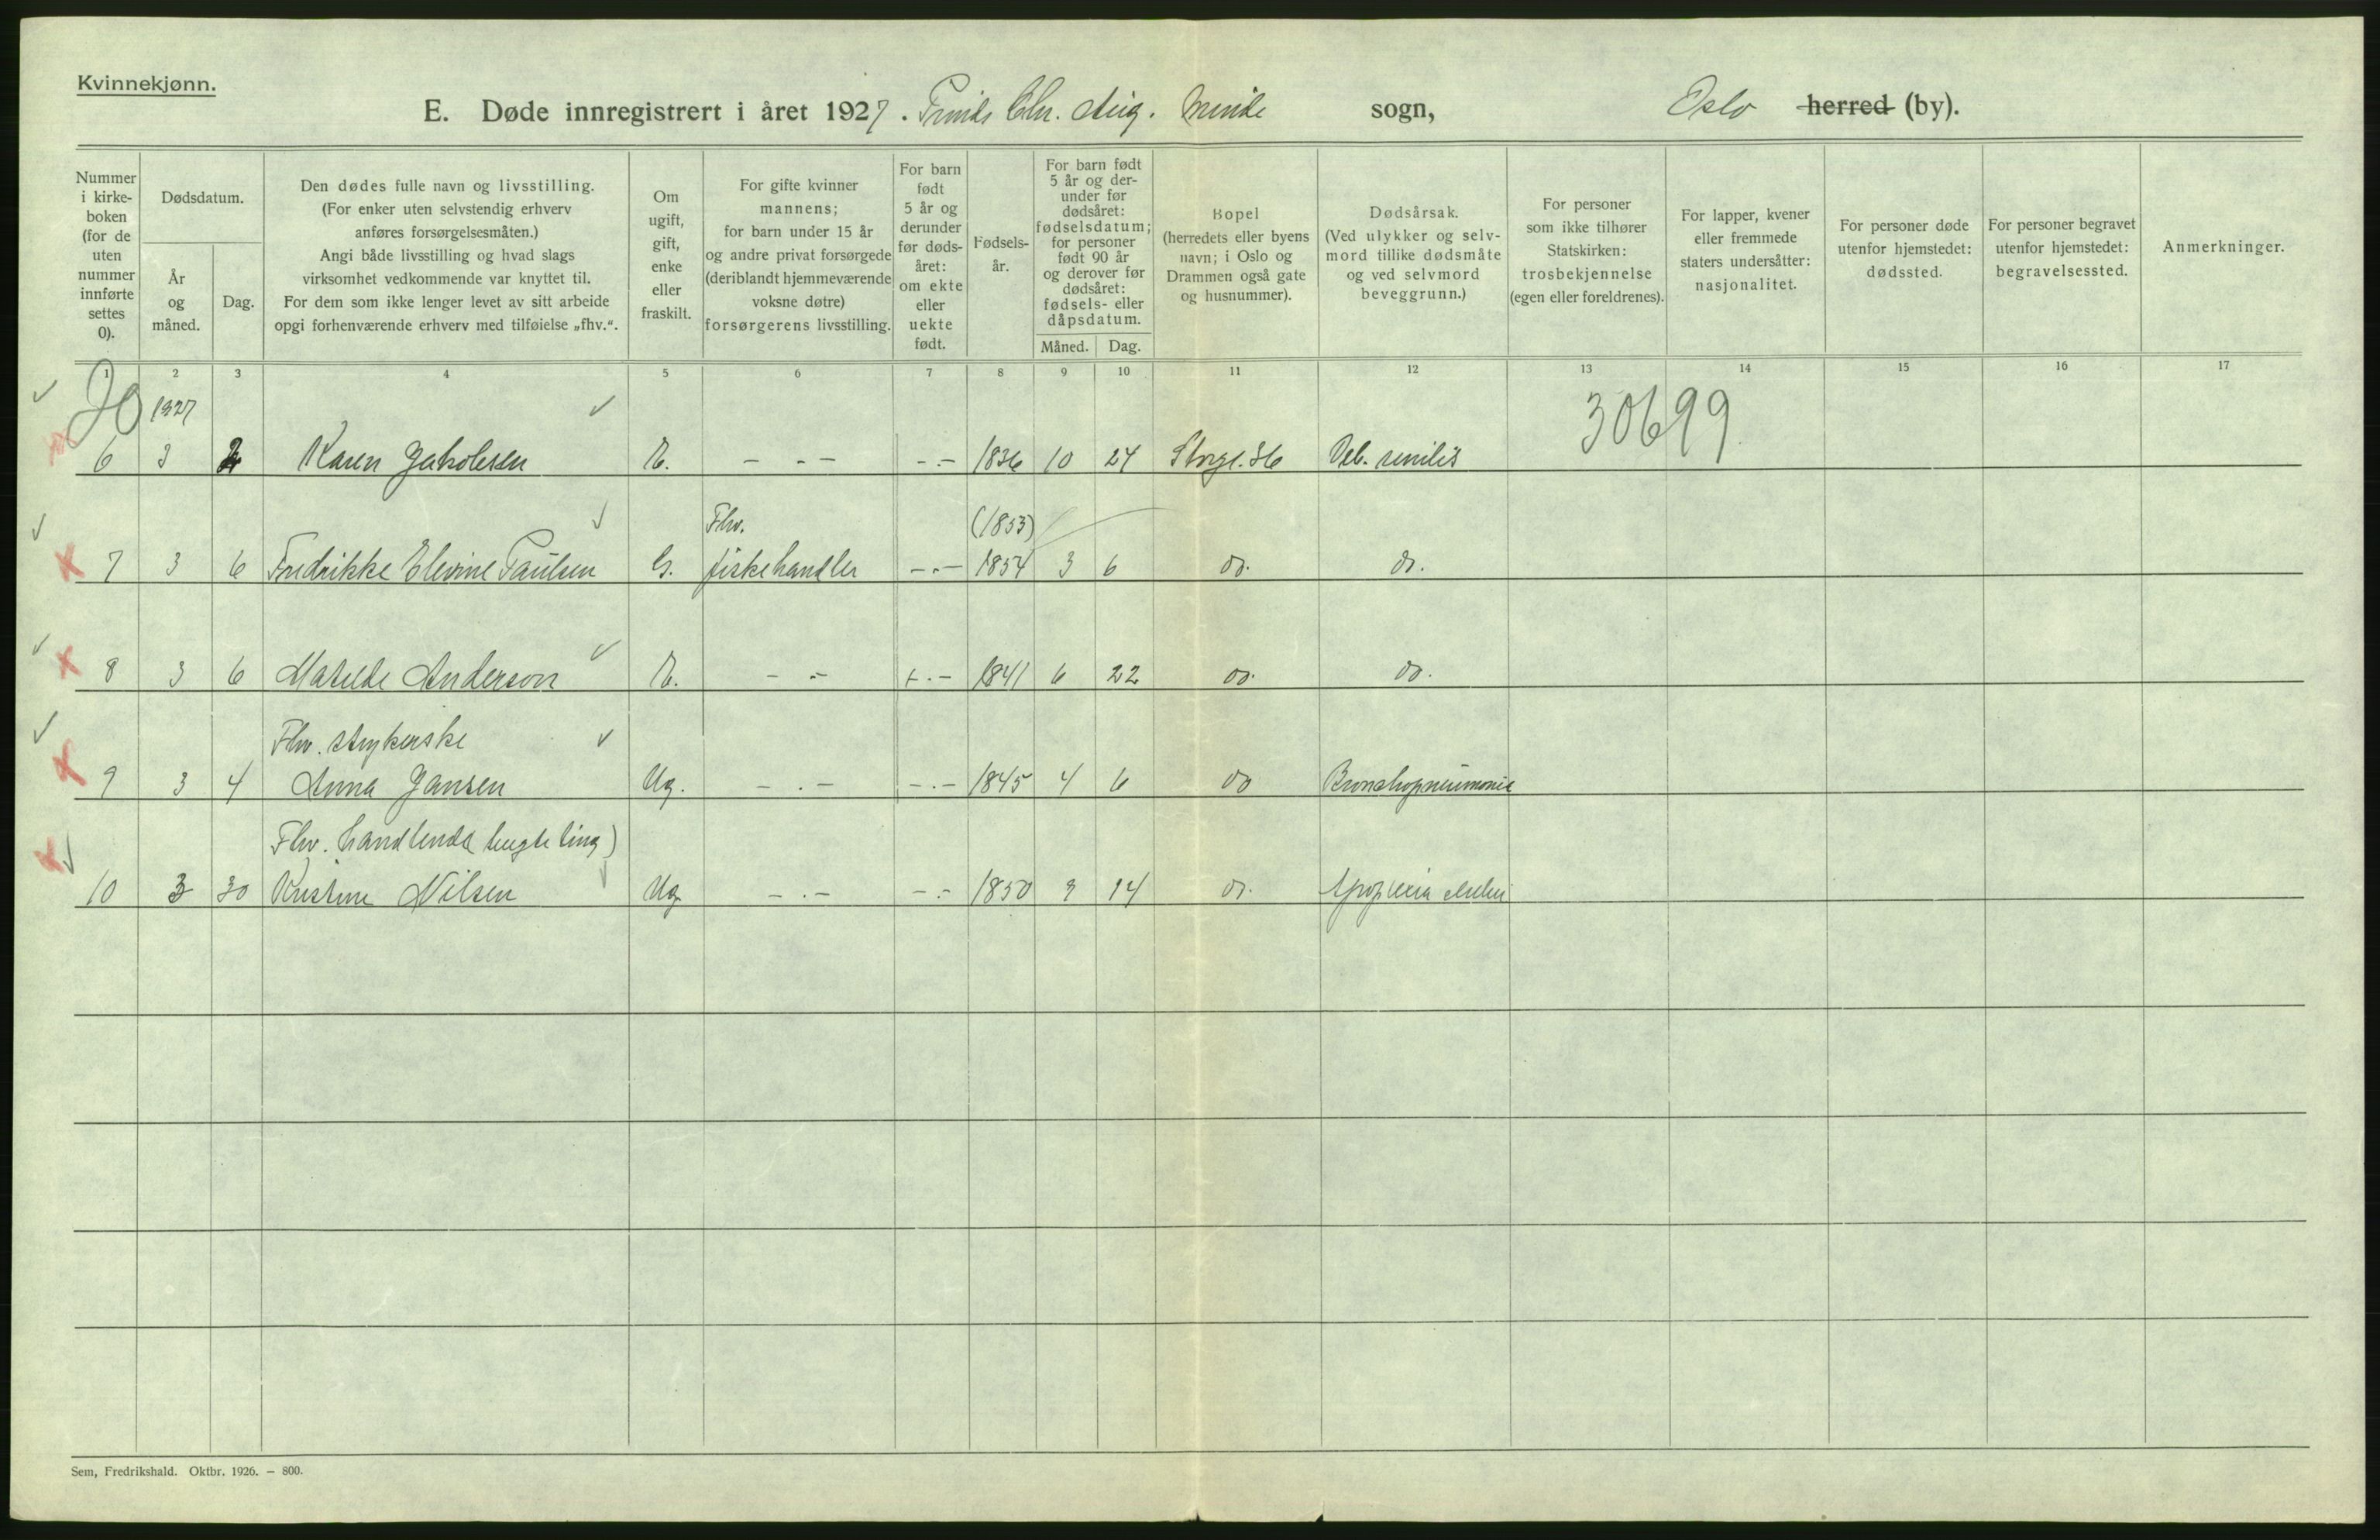 Kvinnekjønn.
E. Døde innregistrert i året 1927. Prinds Chr. Aug. Minde sogn, Oslo herred (by).
Nummer i kirke-boken (for de uten nummer innførte settes 0).
Dødsdatum.
År og måned.
Dag.
Den dødes fulle navn og livsstilling.
(For enker uten selvstendig erhverv
anføres forsørgelsesmåten.)
Angi både livsstilling og hvad slags
virksomhet vedkommende var knyttet til.
For dem som ikke lenger levet av sitt arbeide
opgi forhenværende erhverv med tilføielse „fhv.“.
Om ugift, gift, enke eller fraskilt.
For gifte kvinner
mannens;
for barn under 15 år
og andre privat forsørgede
(deriblandt hjemmeværende
voksne døtre)
forsørgerens livsstilling.
For barn
født
5 år og
derunder
før døds-
året:
om ekte
eller
uekte
født.
Fødsels-
år.
For barn født
5 år og der-
under før
dødsåret:
fødselsdatum;
for personer
født 90 år
og derover før
dødsåret:
fødsels- eller
dåpsdatum.
Måned. Dag.
Bopel
(herredets eller byens
navn; i Oslo og
Drammen også gate
og husnummer).
Dødsårsak.
(Ved ulykker og selv-
mord tillike dødsmåte
og ved selvmord
beveggrunn.)
For personer
som ikke tilhører
Statskirken:
trosbekjennelse
(egen eller foreldrenes).
For lapper, kvener
eller fremmede
staters undersåtter:
nasjonalitet.
For personer døde
utenfor hjemstedet:
dødssted.
For personer begravet
utenfor hjemstedet:
begravelsessted.
Anmerkninger.
1 2 3 4 5 6 7 8 9 10 11 12 13 14 15 16 17
20 1927 30699
6 3 2 Karen Jakobsen E. - - - - - - 1836 10 24 Storgt. 36 Deb. senilis
Fhv. (1853)
7 3 6 Fredrikke Elevine Paulsen G. fiskehandler - - - 1854 3 6 do. do.
8 3 6 Matilde Anderson E. - - - . - 1841 6 22 do. do.
Fhv. strykerske
9 3 4 Anna Jansen Ug. - . - - . - 1845 4 6 do Bronchopneumonie
Fhv. handlende
10 3 30 Kristine Nilsen Ug - . - - . - 1850 9 14 do. Apoplexia cerebri
Sem, Fredrikshald. Oktbr. 1926. – 800.